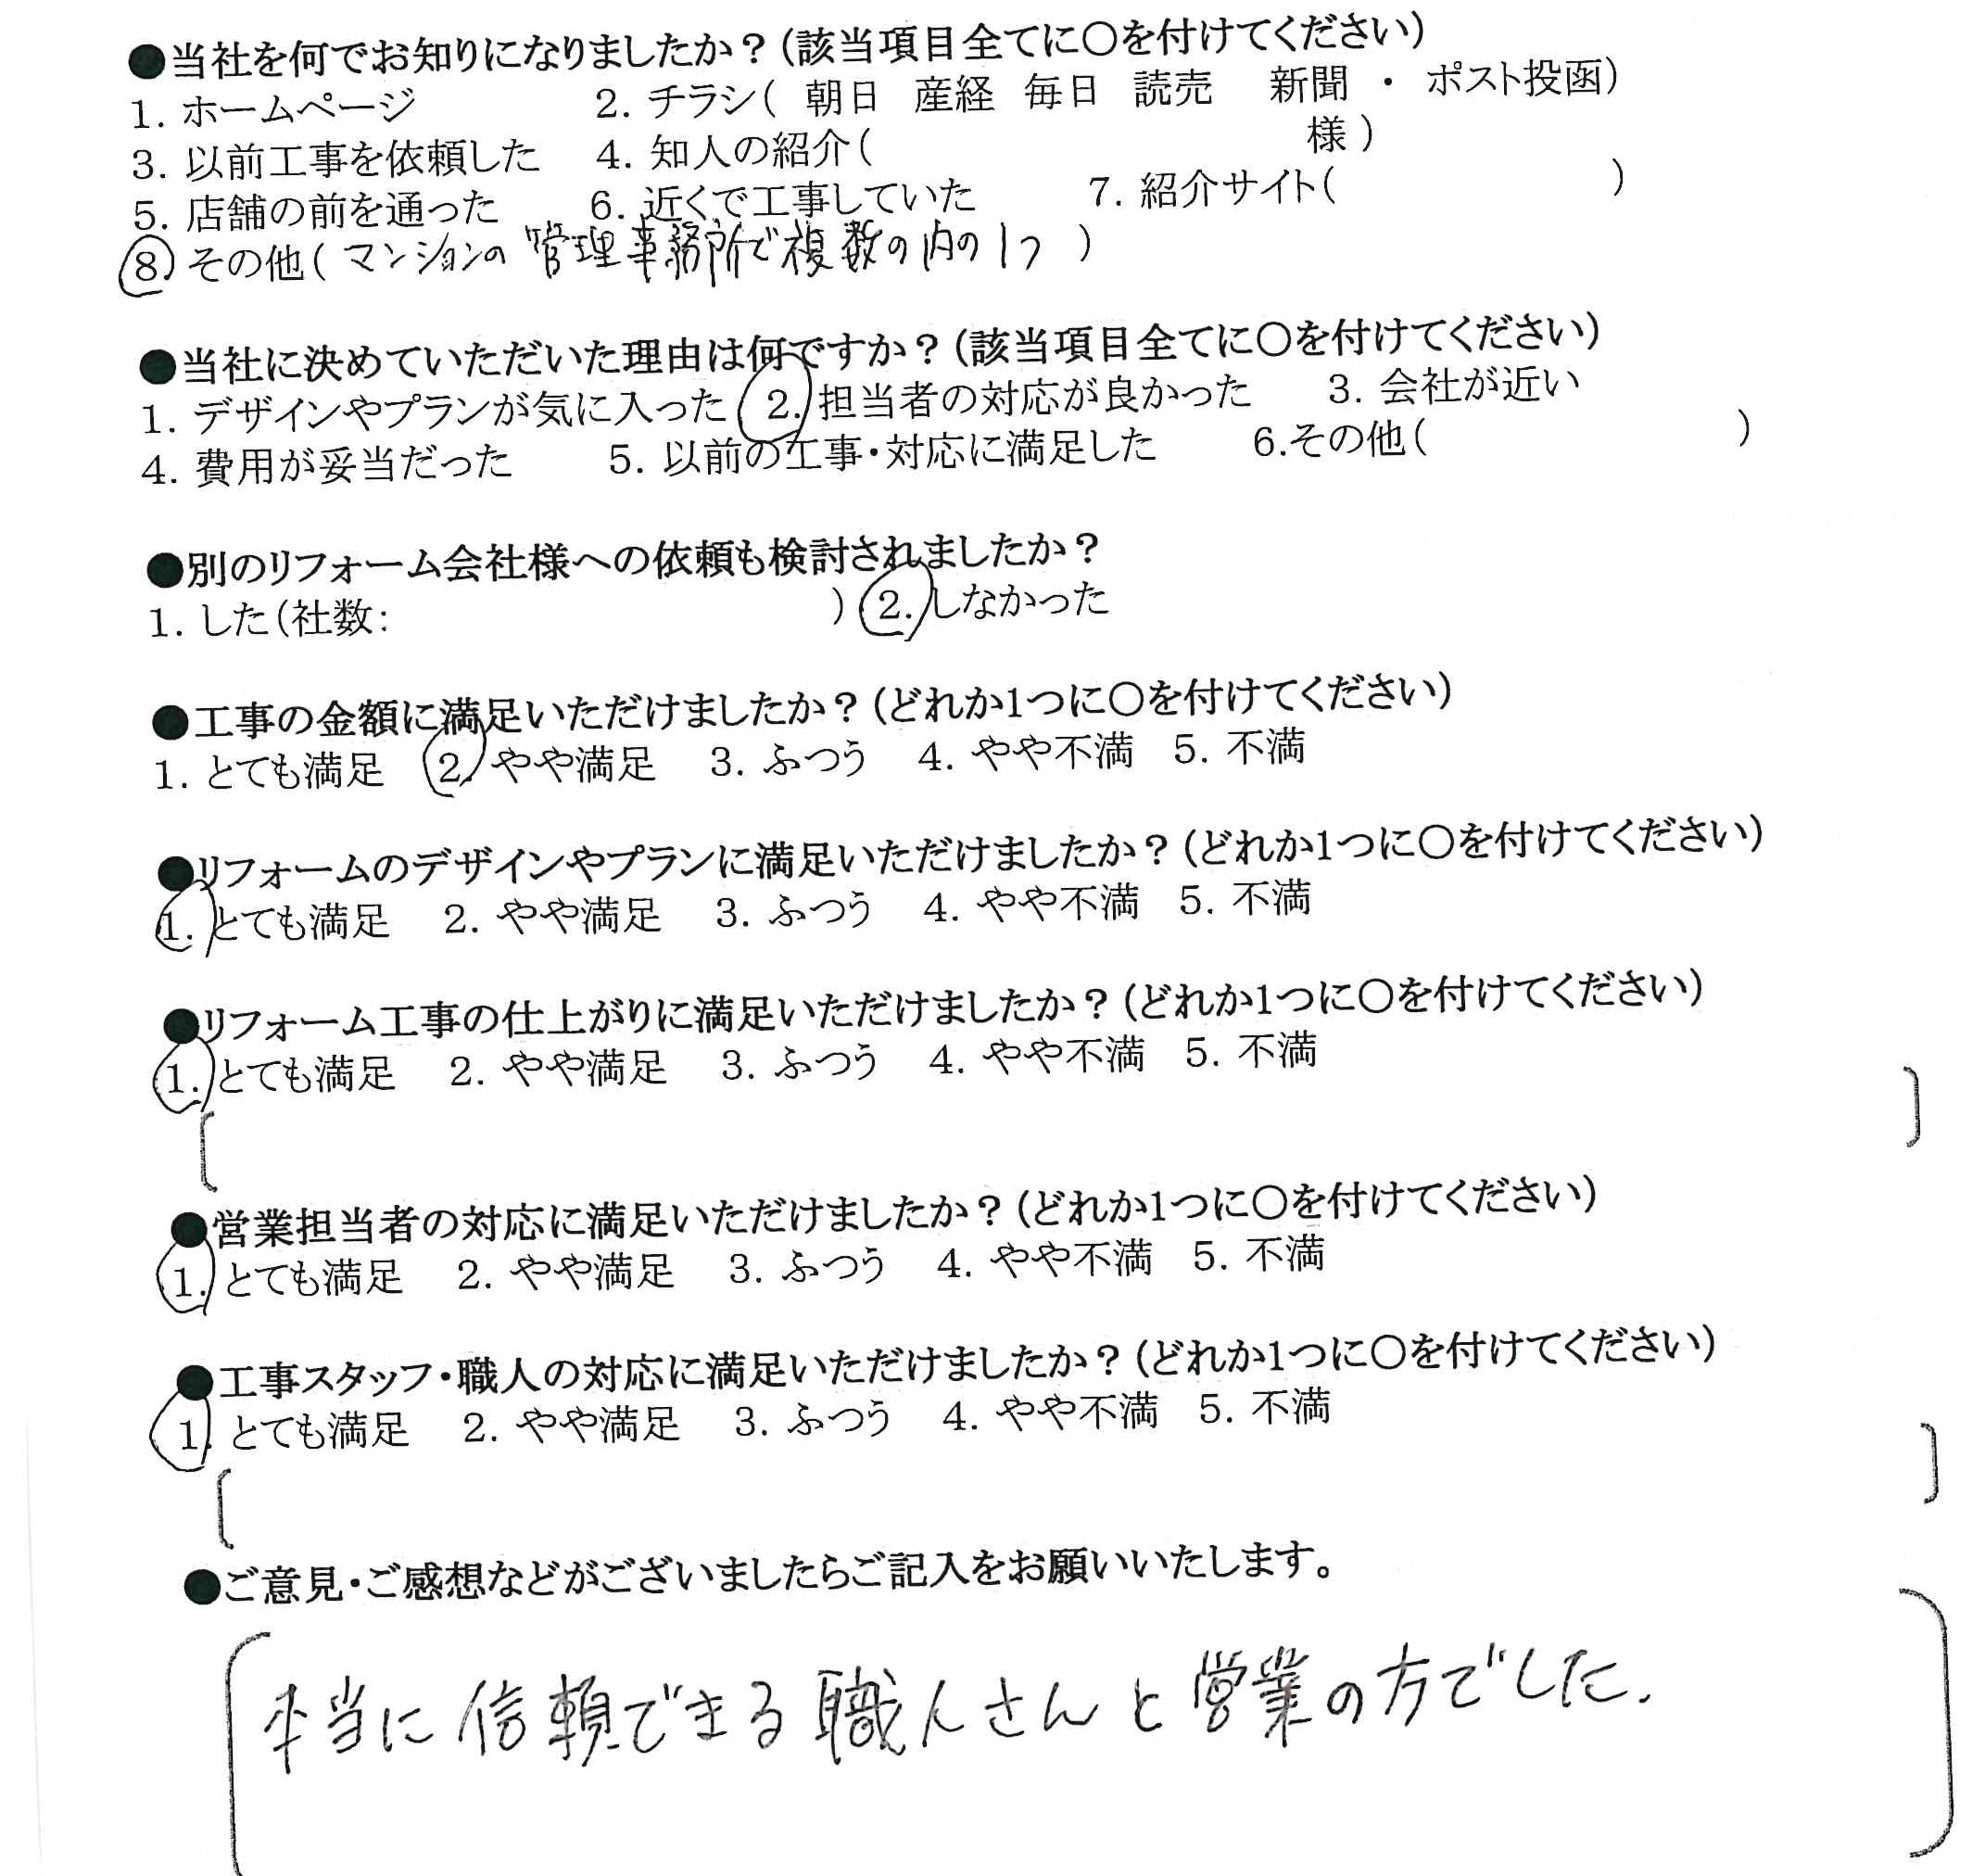 ●当社を何でお知りになりましたか？(該当項目全てに〇を付けてください)
1. ホームページ 2. チラシ( 朝日 産経 毎日 読売 新聞 ・ ポスト投函)
3. 以前工事を依頼した 4. 知人の紹介( 様)
5. 店舗の前を通った 6. 近くで工事していた 7. 紹介サイト( )
8. その他( マンションの管理事務所で複数の内の1つ )
●当社に決めていただいた理由は何ですか？(該当項目全てに〇を付けてください)
1. デザインやプランが気に入った 2. 担当者の対応が良かった 3. 会社が近い
4. 費用が妥当だった 5. 以前の工事・対応に満足した 6.その他( )
●別のリフォーム会社様への依頼も検討されましたか？
1. した(社数: ) 2. しなかった
●工事の金額に満足いただけましたか？(どれか1つに〇を付けてください)
1. とても満足 2. やや満足 3. ふつう 4. やや不満 5. 不満
●リフォームのデザインやプランに満足いただけましたか？(どれか1つに〇を付けてください)
1. とても満足 2. やや満足 3. ふつう 4. やや不満 5. 不満
●リフォーム工事の仕上がりに満足いただけましたか？(どれか1つに〇を付けてください)
1. とても満足 2. やや満足 3. ふつう 4. やや不満 5. 不満
●営業担当者の対応に満足いただけましたか？(どれか1つに〇を付けてください)
1. とても満足 2. やや満足 3. ふつう 4. やや不満 5. 不満
●工事スタッフ・職人の対応に満足いただけましたか？(どれか1つに〇を付けてください)
1. とても満足 2. やや満足 3. ふつう 4. やや不満 5. 不満
●ご意見・ご感想などがございましたらご記入をお願いいたします。
本当に信頼できる職人さんと営業の方でした.